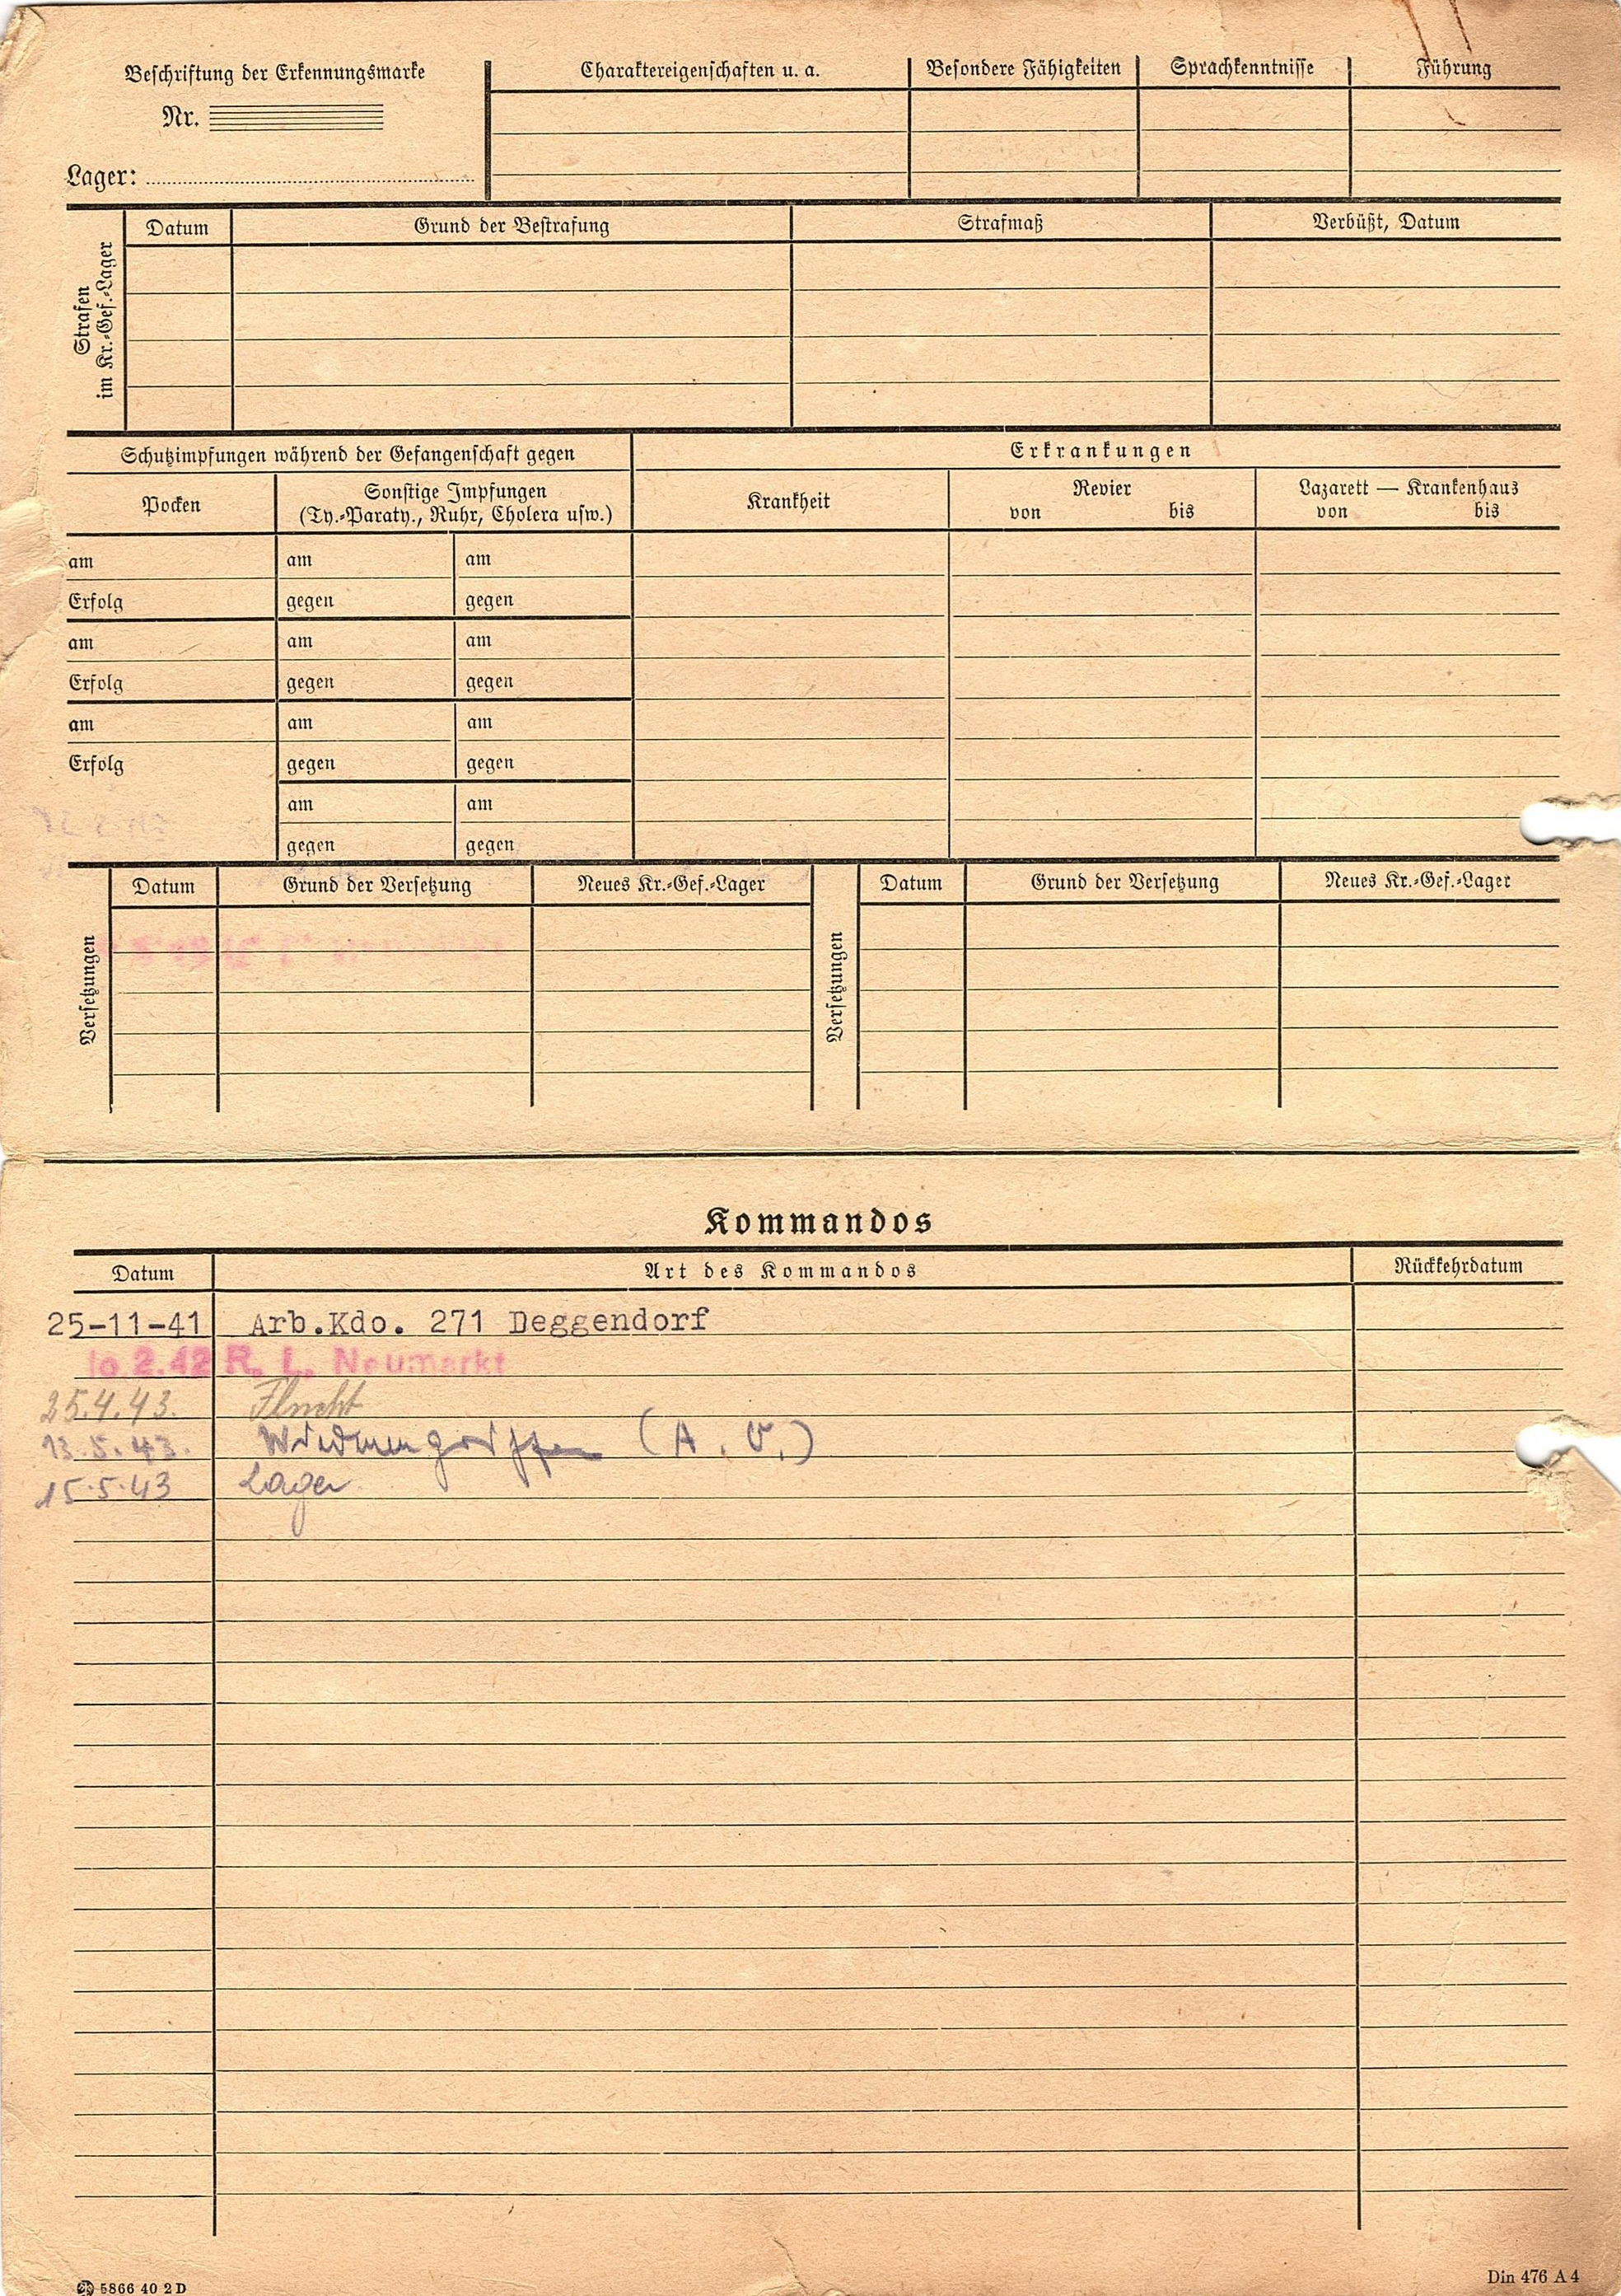 Beschriftung der Erkennungsmarke
Nr.
Lager:
Charaktereigenschaften u. a.
Besondere Fähigkeiten
Sprachkenntnisse
Führung
Strafen
im Kr.-Gef.-Lager
Datum
Grund der Bestrafung
Strafmaß
Verbüßt, Datum
Schutzimpfungen während der Gefangenschaft gegen
Erkrankungen
Pocken
Sonstige Impfungen
(Ty.-Paraty., Ruhr, Cholera usw.)
Krankheit
Revier
von bis
Lazarett — Krankenhaus
von bis
am am am
Erfolg gegen gegen
am am am
Erfolg gegen gegen
am am am
Erfolg gegen gegen
am am
gegen gegen
Versetzungen
Datum Grund der Versetzung Neues Kr.-Gef.-Lager
Versetzungen
Datum Grund der Versetzung Neues Kr.-Gef.-Lager
Kommandos
Datum Art des Kommandos Rückkehrdatum
25-11-41 Arb.Kdo. 271 Deggendorf
1o 2.42 R. L. Neumarkt
25.4.43. Flucht
13.5.43. (A. V.)
15.5.43 Lager
5866 40 2 D
Din 476 A 4